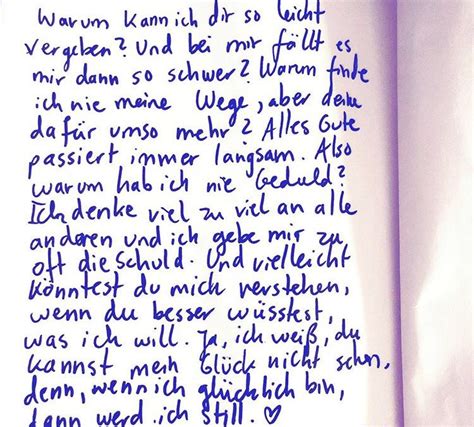 Warum kann ich dir so leicht
vergeben? Und bei mir fällt es
mir dann so schwer? Warum finde
ich nie meine Wege, aber deine
dafür umso mehr? Alles Gute
passiert immer langsam. Also
warum hab ich nie Geduld?
Ich denke viel zu viel an alle
anderen und ich gebe mir zu
oft die Schuld. Und vielleicht
könntest du mich verstehen,
wenn du besser wüsstest,
was ich will. Ja, ich weiß, du
kannst mein Glück nicht sehn,
denn, wenn ich glücklich bin,
dann werd ich still. ♡